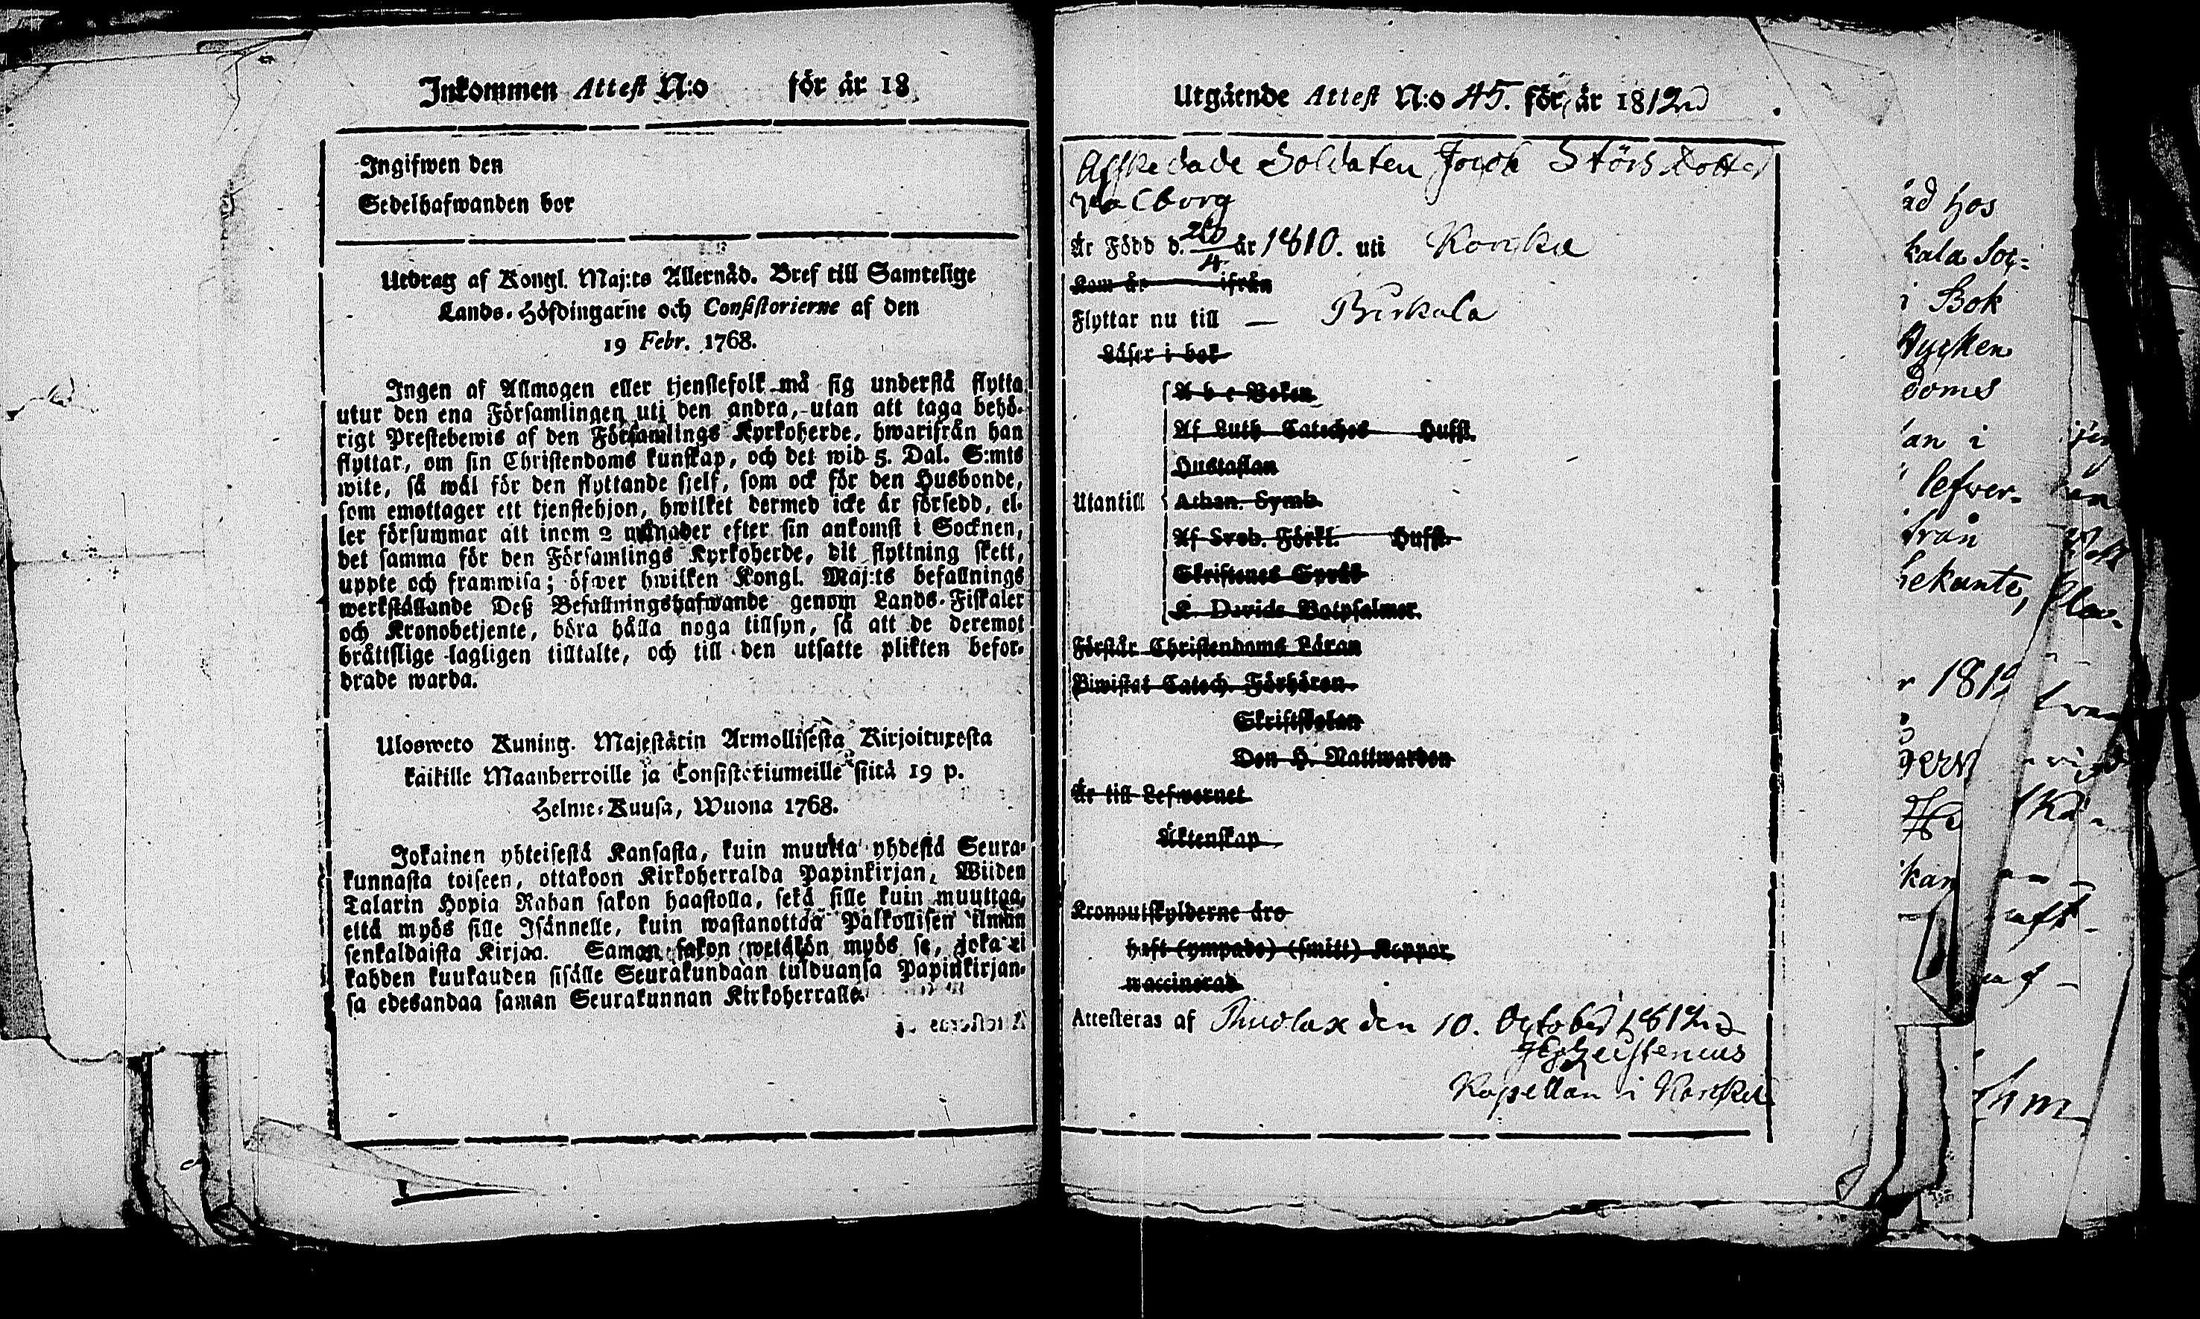 Inkommen Attest N:o för år 18
Ingifwen den
Sedelhafwanden bor
Utdrag af Kongl. Maj:ts Allernåd. Bref till Samtelige
Lands-Höfdingarne och Consistorierne af den
19 Febr. 1768.
Ingen af Allmogen eller tjenstefolk må sig understå flytta
utur den ena Församlingen uti den andra, utan att taga behö-
rigt Prestebewis af den Församlings Kyrkoherde, hwarifrån han
flyttar, om sin Christendoms kunskap, och det wid 5. Dal. S:mts
wite, så wäl för den flyttande sielf, som ock för den Husbonde,
som emottager ett tjenstehjon, hwilket dermed icke är försedd, el-
ler försummar att inom 2 månader efter sin ankomst i Socknen,
det samma för den Församlings Kyrkoherde, dit flyttning skett,
uppte och framwisa; öfwer hwilken Kongl. Maj:ts befallnings
werkställande Deß Befallningshafwande genom Lands-Fiskaler
och Kronobetjente, böra hålla noga tillsyn, så att de deremot
bråttslige lagligen tilltalte, och till den utsatte plikten befor-
drade warda.
Ulosweto Kuning. Majestätin Armollisesta Kirjoituxesta
kaikille Maanherroille ja Consistoriumeille siitä 19 p.
Helme-Kuusa, Wuona 1768.
Jokainen yhteisestä Kansasta, kuin muutta yhdestä Seura-
kunnasta toiseen, ottakoon Kirkoherralda Papinkirjan, Wiiden
Talarin Hopia Rahan sakon haastolla, sekä sille kuin muuttaa,
että myös sille Isännelle, kuin wastanottaa Palkollisen ilman
senkaldaista Kirjaa. Saman sakon wetäkön myös se, joka ei
kahden kuukauden sisälle Seurakundaan tulduansa Papinkirjan-
sa edesandaa saman Seurakunnan Kirkoherralle.
Utgående Attest N:o 45. för år 1812
Afskedade Soldaten Jacob Störs Dotter
Walborg
Är Född d. 26/4 år 1810. uti Korske
Kom år ifrån
Flyttar nu till — Birkala
Läser i bok
A b c Boken
Af Luth. Cateches Hufst.
Hustaflan
Utantill Athan. Symb.
Af Sveb. Förkl. Hufst.
Skriftenes Språk
K. Davids Botpsalmer.
Förstår Christendoms Läran
Biwistat Catech. Förhören.
Skriftskolan
Den H. Nattwarden
Är till Lefwernet
Äktenskap
Kronoutskylderne äro
haft (ympade) (smitt) Koppor
waccinerad
Attesteras af Thudlax den 10. October 1812
Kapellan i Korske
ad hos
kala Soc-
i Bok
Mycken
doms
an i
lefwer-
från
bekante,
r 1812